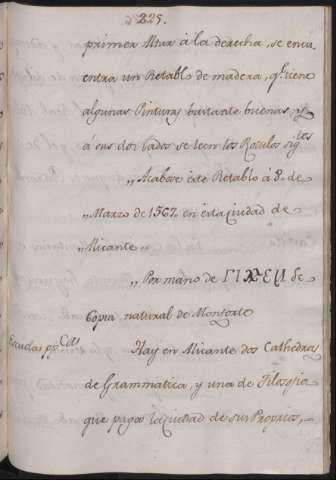 225.
primer Altar à la derecha, se encu
entra un Retablo de madera, q.e tiene
algunas Pinturas bastante buenas, y
à sus dos lados se leen los Rotulos sig.tes
„Acabose este Retablo à 8. de
„Marzo de 1567. en esta ciudad de
„Alicante„
„Por mano de de
Copia natural de Monforte
Escuelas pp.cas Hay en Alicante dos Cathedras
de Grammatica, y una de Filosofia
que paga la ciudad de sus Proprios,